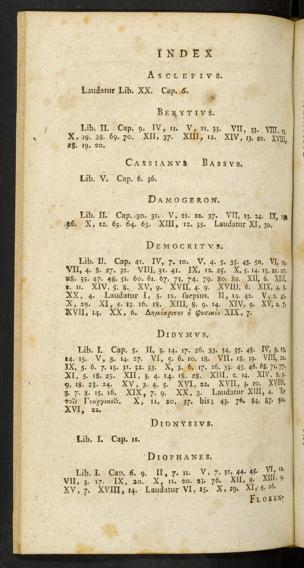 INDEX
ASCLEPIVS.
Laudatur Lib. XX. Cap. 6.
BERYTIVS.
Lib. II. Cap. 9. IV, 11. V, 11. 33. VII, 33. VIII,
X, 19. 38. 69. 70. XII, 37. XIII, 12. XIV, 13. 20. XVIII,
28. 19. 20.
CASSIANVS BASSVS.
Lib. V. Cap. 6. 36.
DAMOGERON.
Lib. II. Cap. 30. 31. V, 21. 22. 37. VII, 13. 24. IX,
26. X, 12. 63. 64. 65. XIII, 12. 35. Laudatur XI, 30.
DEMOCRITVS.
Lib. II. Cap. 41. IV, 7. 10. V, 4. 5. 35. 43. 50. VI,
VII, 4. 8. 27. 32. VIII, 31. 41. IX, 12. 25. X, 5. 14. 15.
28. 35. 47. 48. 51. 60. 61. 67. 71. 74. 79. 80. 89. XII, 6. XIII,
2. 11. XIV, 5. 8. XV, 9. XVII, 4. 9. XVIII, 6. XIX, 4. 5.
XX, 4. Laudatur I, 5. 12. saepius. II, 14. 42. V, 2. 45.
X, 29. XI, 5. 13. 16. 18. XIII, 8. 9. 14. XIV, 9. XV, 2. 7.
XVII, 14. XX, 6. Δημόκριτος ὁ φυσικὸς XIX, 7.
DIDYMVS.
Lib. I. Cap. 5. II, 3. 14. 17. 26. 33. 34. 35. 48. IV, 3.
14. 15. V, 3. 14. 27. VI, 5. 6. 10. 18. VII, 15. 19. VIII, 21.
IX, 5. 6. 7. 15. 31. 32. 33. X, 3. 6. 17. 26. 33. 45. 46. 63. 71. 77.
XI, 5. 18. 25. XII, 3. 4. 14. 15. 28. XIII, 2. 14. XIV, 2. 3.
9, 18. 23. 24. XV, 3. 4. 5. XVI, 22. XVII, 3. 20. XVIII,
3. 7. 8. 15. 16. XIX, 7. 9. XX, 3. Laudatur XIII, 4. Ἐν
τοῖς Γεωργικοῖς. X, 11, 20. 37. bis; 43. 76. 84. 87.
XVI, 22.
DIONYSIVS.
Lib. I. Cap. 11.
DIOPHANES.
Lib. I. Cap. 6. 9. II, 7. 11. V, 7. 31. 44. 45. VI,
VII, 3. 17. IX, 20. X, 11. 20. 23. 76. XII, 9. XIII,
XV, 7. XVIII, 14. Laudatur VI, 15. X, 29. XI, 5. 26.
FLOREN-